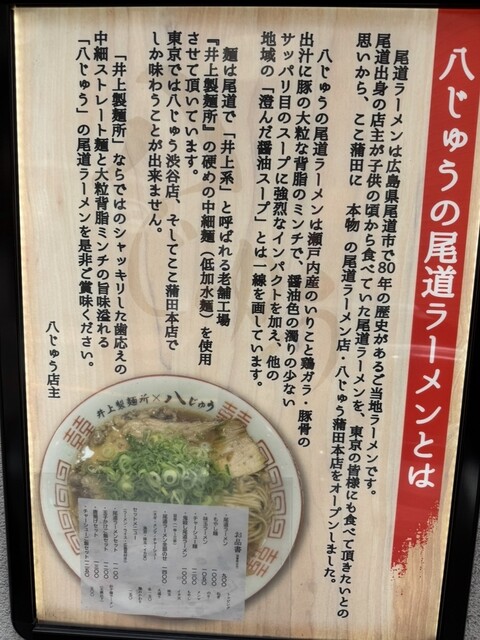 八じゅうの尾道ラーメンとは
尾道ラーメンは広島県尾道市で80年の歴史があるご当地ラーメンです。
尾道出身の店主が子供の頃から食べていた尾道ラーメンを、東京の皆様にも食べて頂きたいとの
思いから、ここ蒲田に 本物 の尾道ラーメン店・八じゅう蒲田本店をオープンしました。
八じゅうの尾道ラーメンは瀬戸内産のいりこと鶏ガラ・豚骨の
出汁に豚の大粒な背脂のミンチで、醤油色の濁りの少ない
サッパリ目のスープに強烈なインパクトを加え、他の
地域の「澄んだ醤油スープ」とは一線を画しています。
麺は尾道で「井上系」と呼ばれる老舗工場
『井上製麺所』の硬めの中細麺（低加水麺）を使用
させて頂いています。
東京では八じゅう渋谷店、そしてここ蒲田本店で
しか味わうことが出来ません。
「井上製麺所」ならではのシャッキリした歯応えの
中細ストレート麺と大粒背脂ミンチの旨味溢れる
「八じゅう」の尾道ラーメンを是非ご賞味ください。
八じゅう店主
井上製麺所×八じゅう
お品書